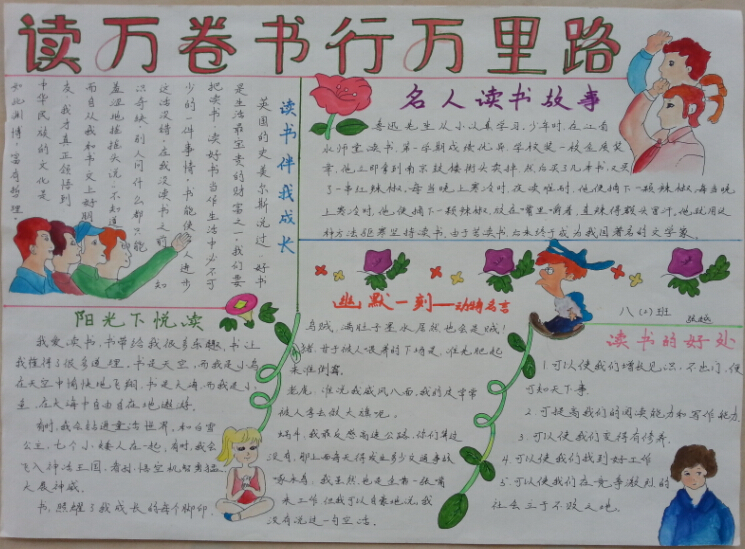 读万卷书行万里路
读书伴我成长
英国的史美尔斯说过:好书
是生活最宝贵的财富之一,我们要
把读书、读好书当作生活中必不可
少的一件事情。书能使人进步
这话没错。在我没读书之前,知
识奇缺,别人问什么都只能
羞涩地摇摇头说:不知道
而自从我和书交上好朋
友,我才真正领悟到
中华民族的文化是
如此渊博,富有哲理。
名人读书故事
鲁迅先生从小认真学习。少年时,在江南
水师学堂读书,第一学期成绩优异,学校奖一枚金质奖
章,他立即拿到南京鼓楼街头卖掉,然后买了几本书,又买
了一串红辣椒。每当晚上寒冷时,夜读难耐,他便摘下一颗辣椒,每当晚
上寒冷时,他便摘下一颗辣椒,放在嘴里嚼着,直辣得额头冒汗。他就用这
种方法驱寒坚持读书。由于苦读书,后来终于成为我国著名的文学家。
阳光下悦读
我爱读书,书带给我很多乐趣,书让
我懂得了很多道理。书是天空,而我是小鸟
在天空中愉快地飞翔。书是大海,而我是小
鱼,在大海中自由自在地遨游。
有时,我会钻进童话世界,和白雪
公主,七个小矮人在一起,有时,我会
飞入神话王国,看孙悟空机智勇猛,
大展神威。
书,照耀了我成长的每个脚印。
幽默一刻——动物名言
乌贼:满肚子墨水居然也会是贼!
猪:甘于被人喂养的下场是,谁先肥起
来谁倒霉。
老虎:谁说我威风八面,我的皮常常
被人拿去做大旗呢。
蜗牛:我最反感高速公路,你们算过
没有,那上面每天得发生多少交通事故
啄木鸟:我虽然也是生着一张嘴
来工作,但我可以自豪地说,我
没有说过一句空话。
八(2)班
读书的好处
1.可以使我们增长见识,不出门,便
可知天下事。
2.可提高我们的阅读能力和写作能力。
3.可以使我们变得有修养。
4.可以使我们找到好工作
5.可以使我们在竞争激烈的
社会立于不败之地。